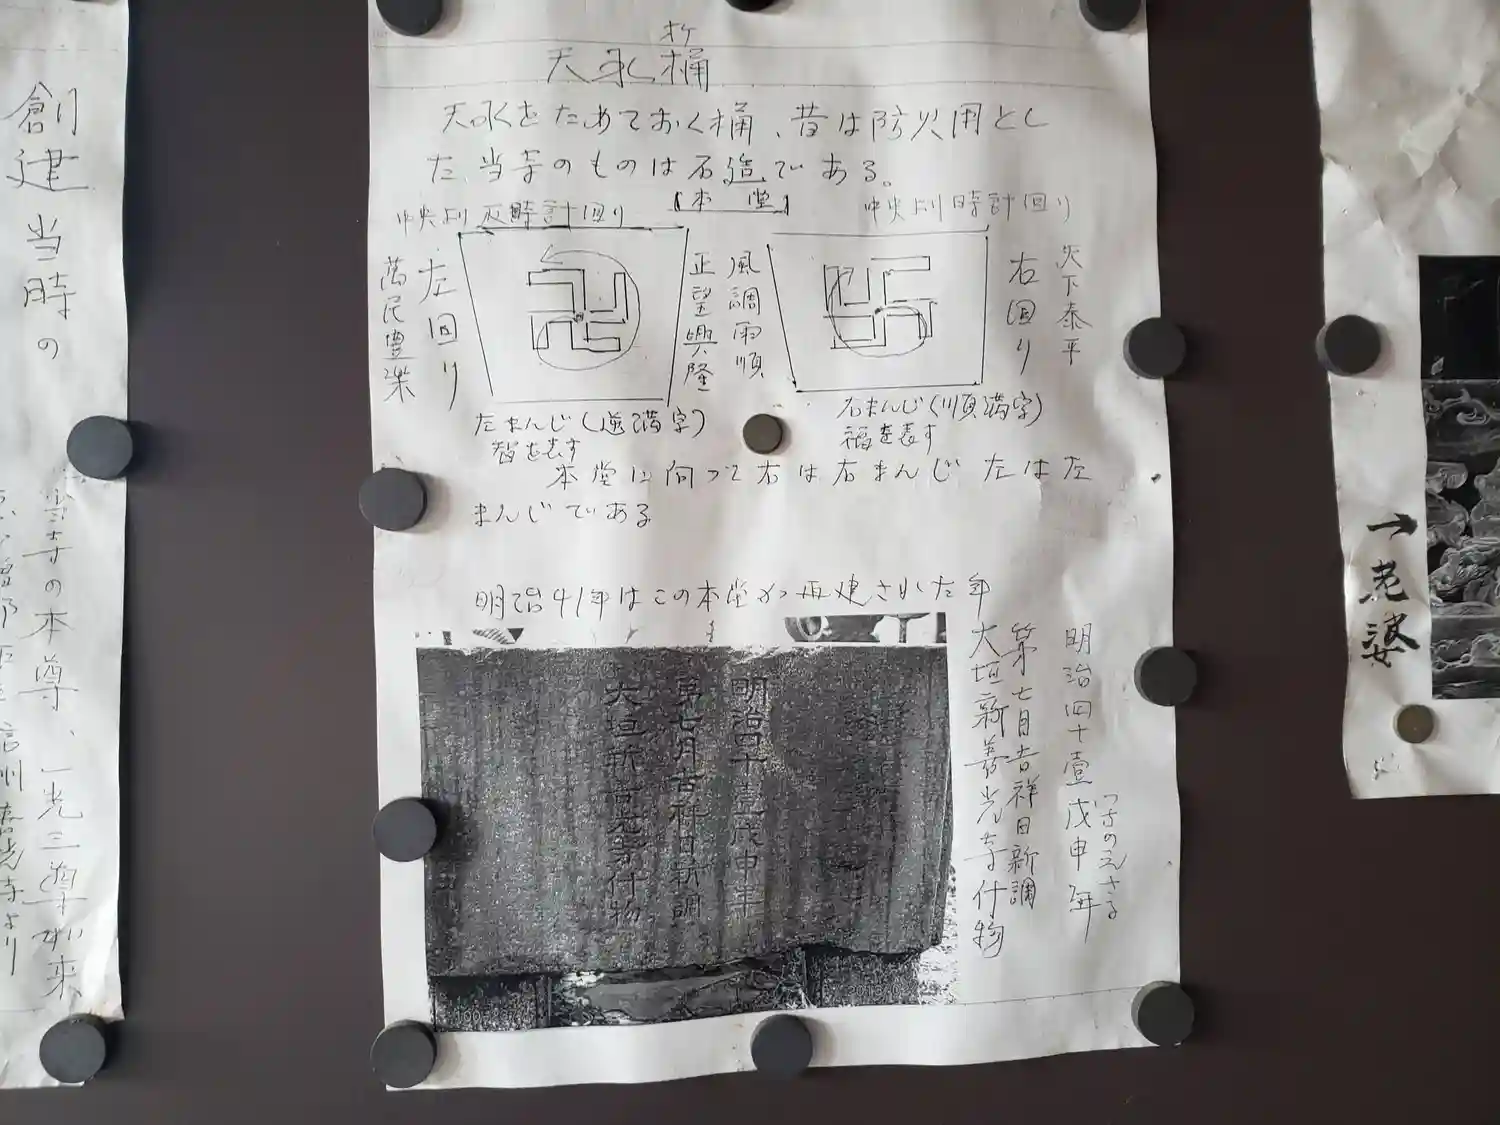 オケ
天水桶
天水をためておく桶、昔は防災用とし
た、当寺のものは石造である。
【本 堂】
中央より反時計回り
中央より時計回り
萬民豊楽
左回り
正望興隆
風調雨順
右回り
天下泰平
左まんじ(逆満字)
智を表す
右まんじ(順満字)
福を表す
本堂に向って右は右まんじ 左は左
まんじである
明治41年はこの本堂が再建された年
明治四十壹戊申年
つちのえさる
第七月吉祥日新調
大垣新善光寺什物
明治四十壹戊申年
第七月吉祥日新調
大垣新善光寺什物
創建当時の
当寺の本尊、一光三尊
信州善光寺より
一老婆